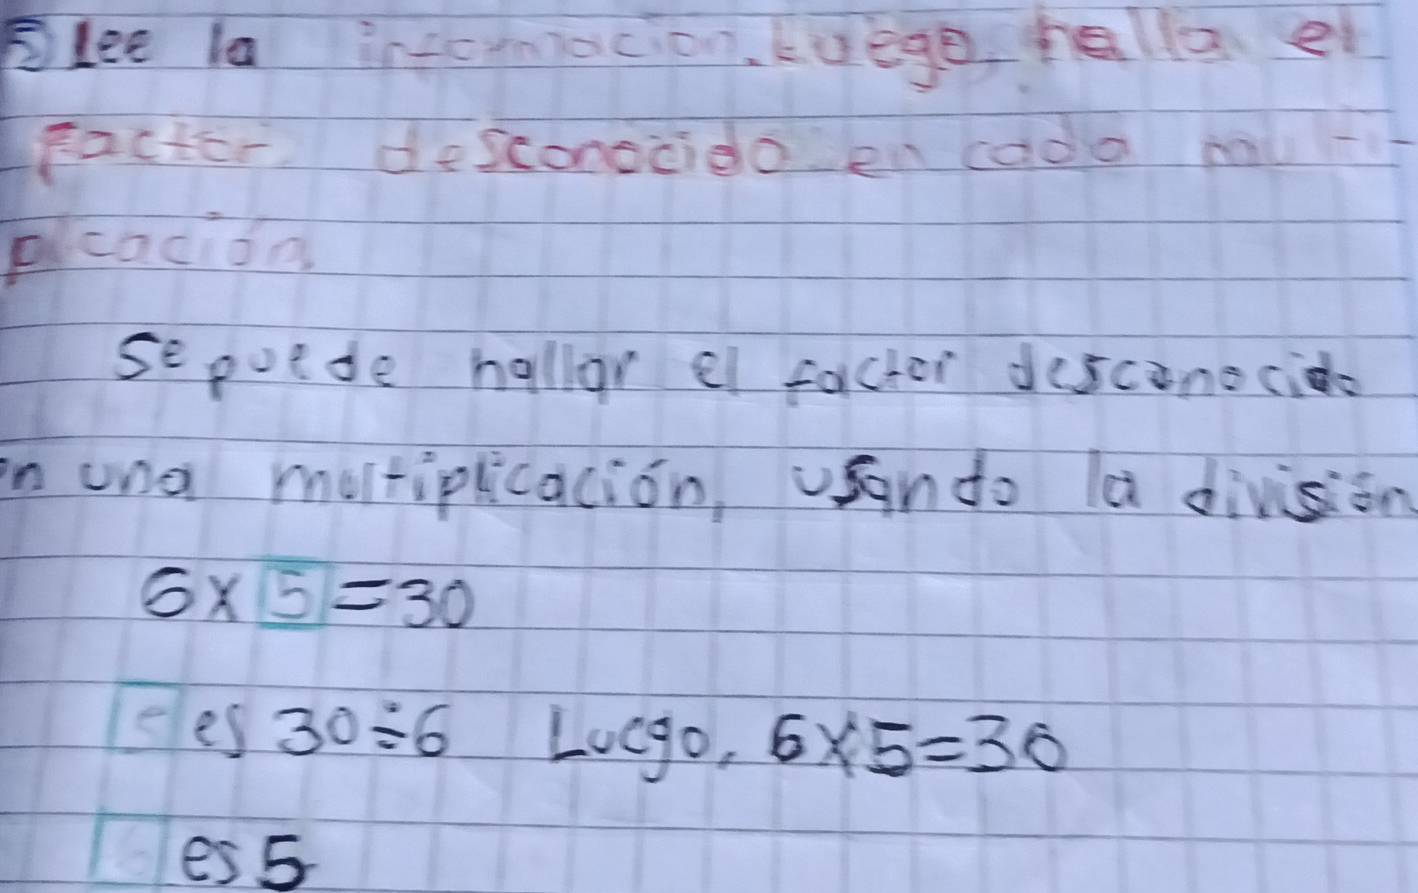 ⑤ Lee la información. Luego halla el
factor desconocido en cada multi-
plcación
Se puede hallar el factor desconocido
en una multiplicación, usando la división
6×5=30
es 30÷6 Luego, 6×5=30
es 5